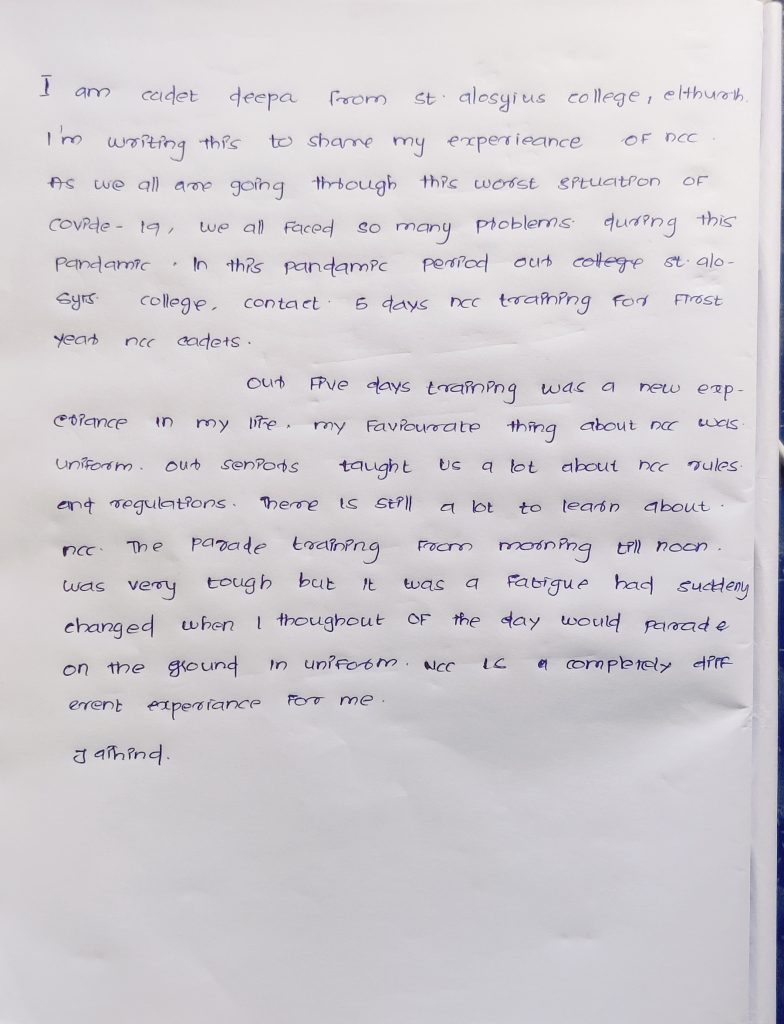 I am cadet deepa from st. alosyius college, elthuruth.
I'm writing this to share my experieance of ncc.
As we all are going through this worst situation of
covide-19, we all faced so many problems during this
pandamic. In this pandamic period our college st. alo-
syis college, contact 5 days ncc training for First
year ncc cadets.
our Five days training was a new exp-
eriance in my life. my Faviourate thing about ncc was
uniform. our seniors taught us a lot about ncc rules
and regulations. There is still a lot to learn about
ncc. The parade training from morning till noon.
was very tough but it was a Fatigue had suddeny
changed when I thoughout of the day would parade
on the ground in uniform. NCC is a completely diff
erent experiance for me.
Jaihind.